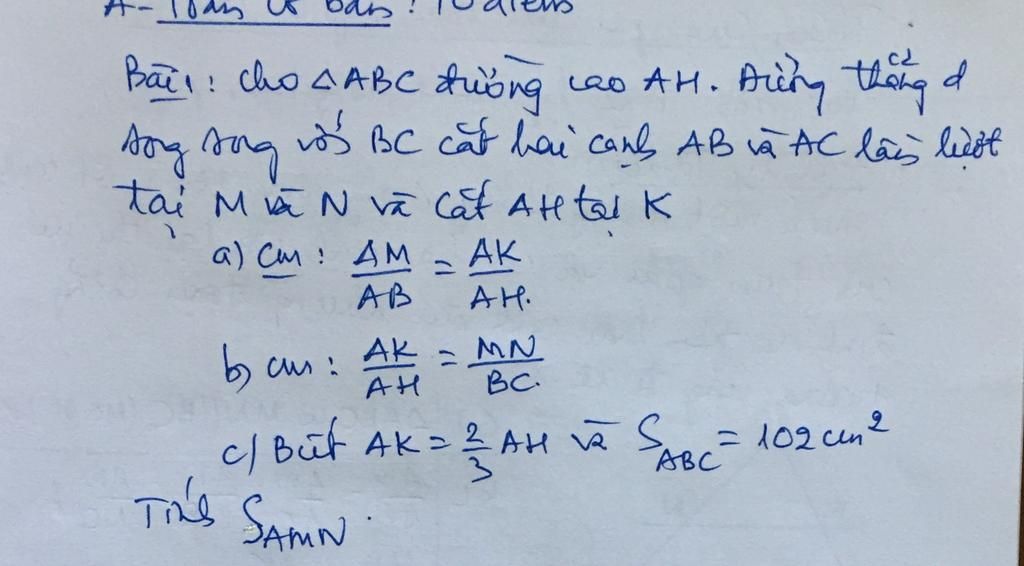 A- Toán cơ bản : 10 điểm
Bài 1 : Cho △ABC đường cao AH. Đường thẳng d
song song với BC cắt hai cạnh AB và AC lần lượt
tại M và N và cắt AH tại K
a) cm : AM/AB = AK/AH.
b) cm : AK/AH = MN/BC.
c) Biết AK = 2/3 AH và S_ABC = 102 cm²
Tính S_AMN.